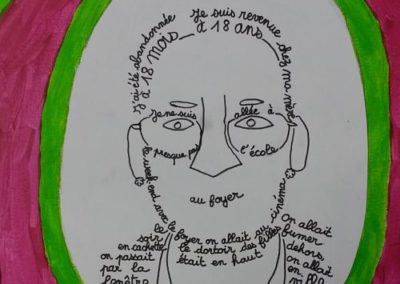 J'ai été abandonnée
à 18 mois_
Je suis revenue chez ma mère
à 18 ans
Je ne suis
presque pas
allée à
l'école
au foyer
le week-end avec le foyer on allait au cinéma
le dortoir des filles
était en haut
le
soir
en cachette
on passait
par la
fenêtre
On allait
fumer
dehors,
on allait
en